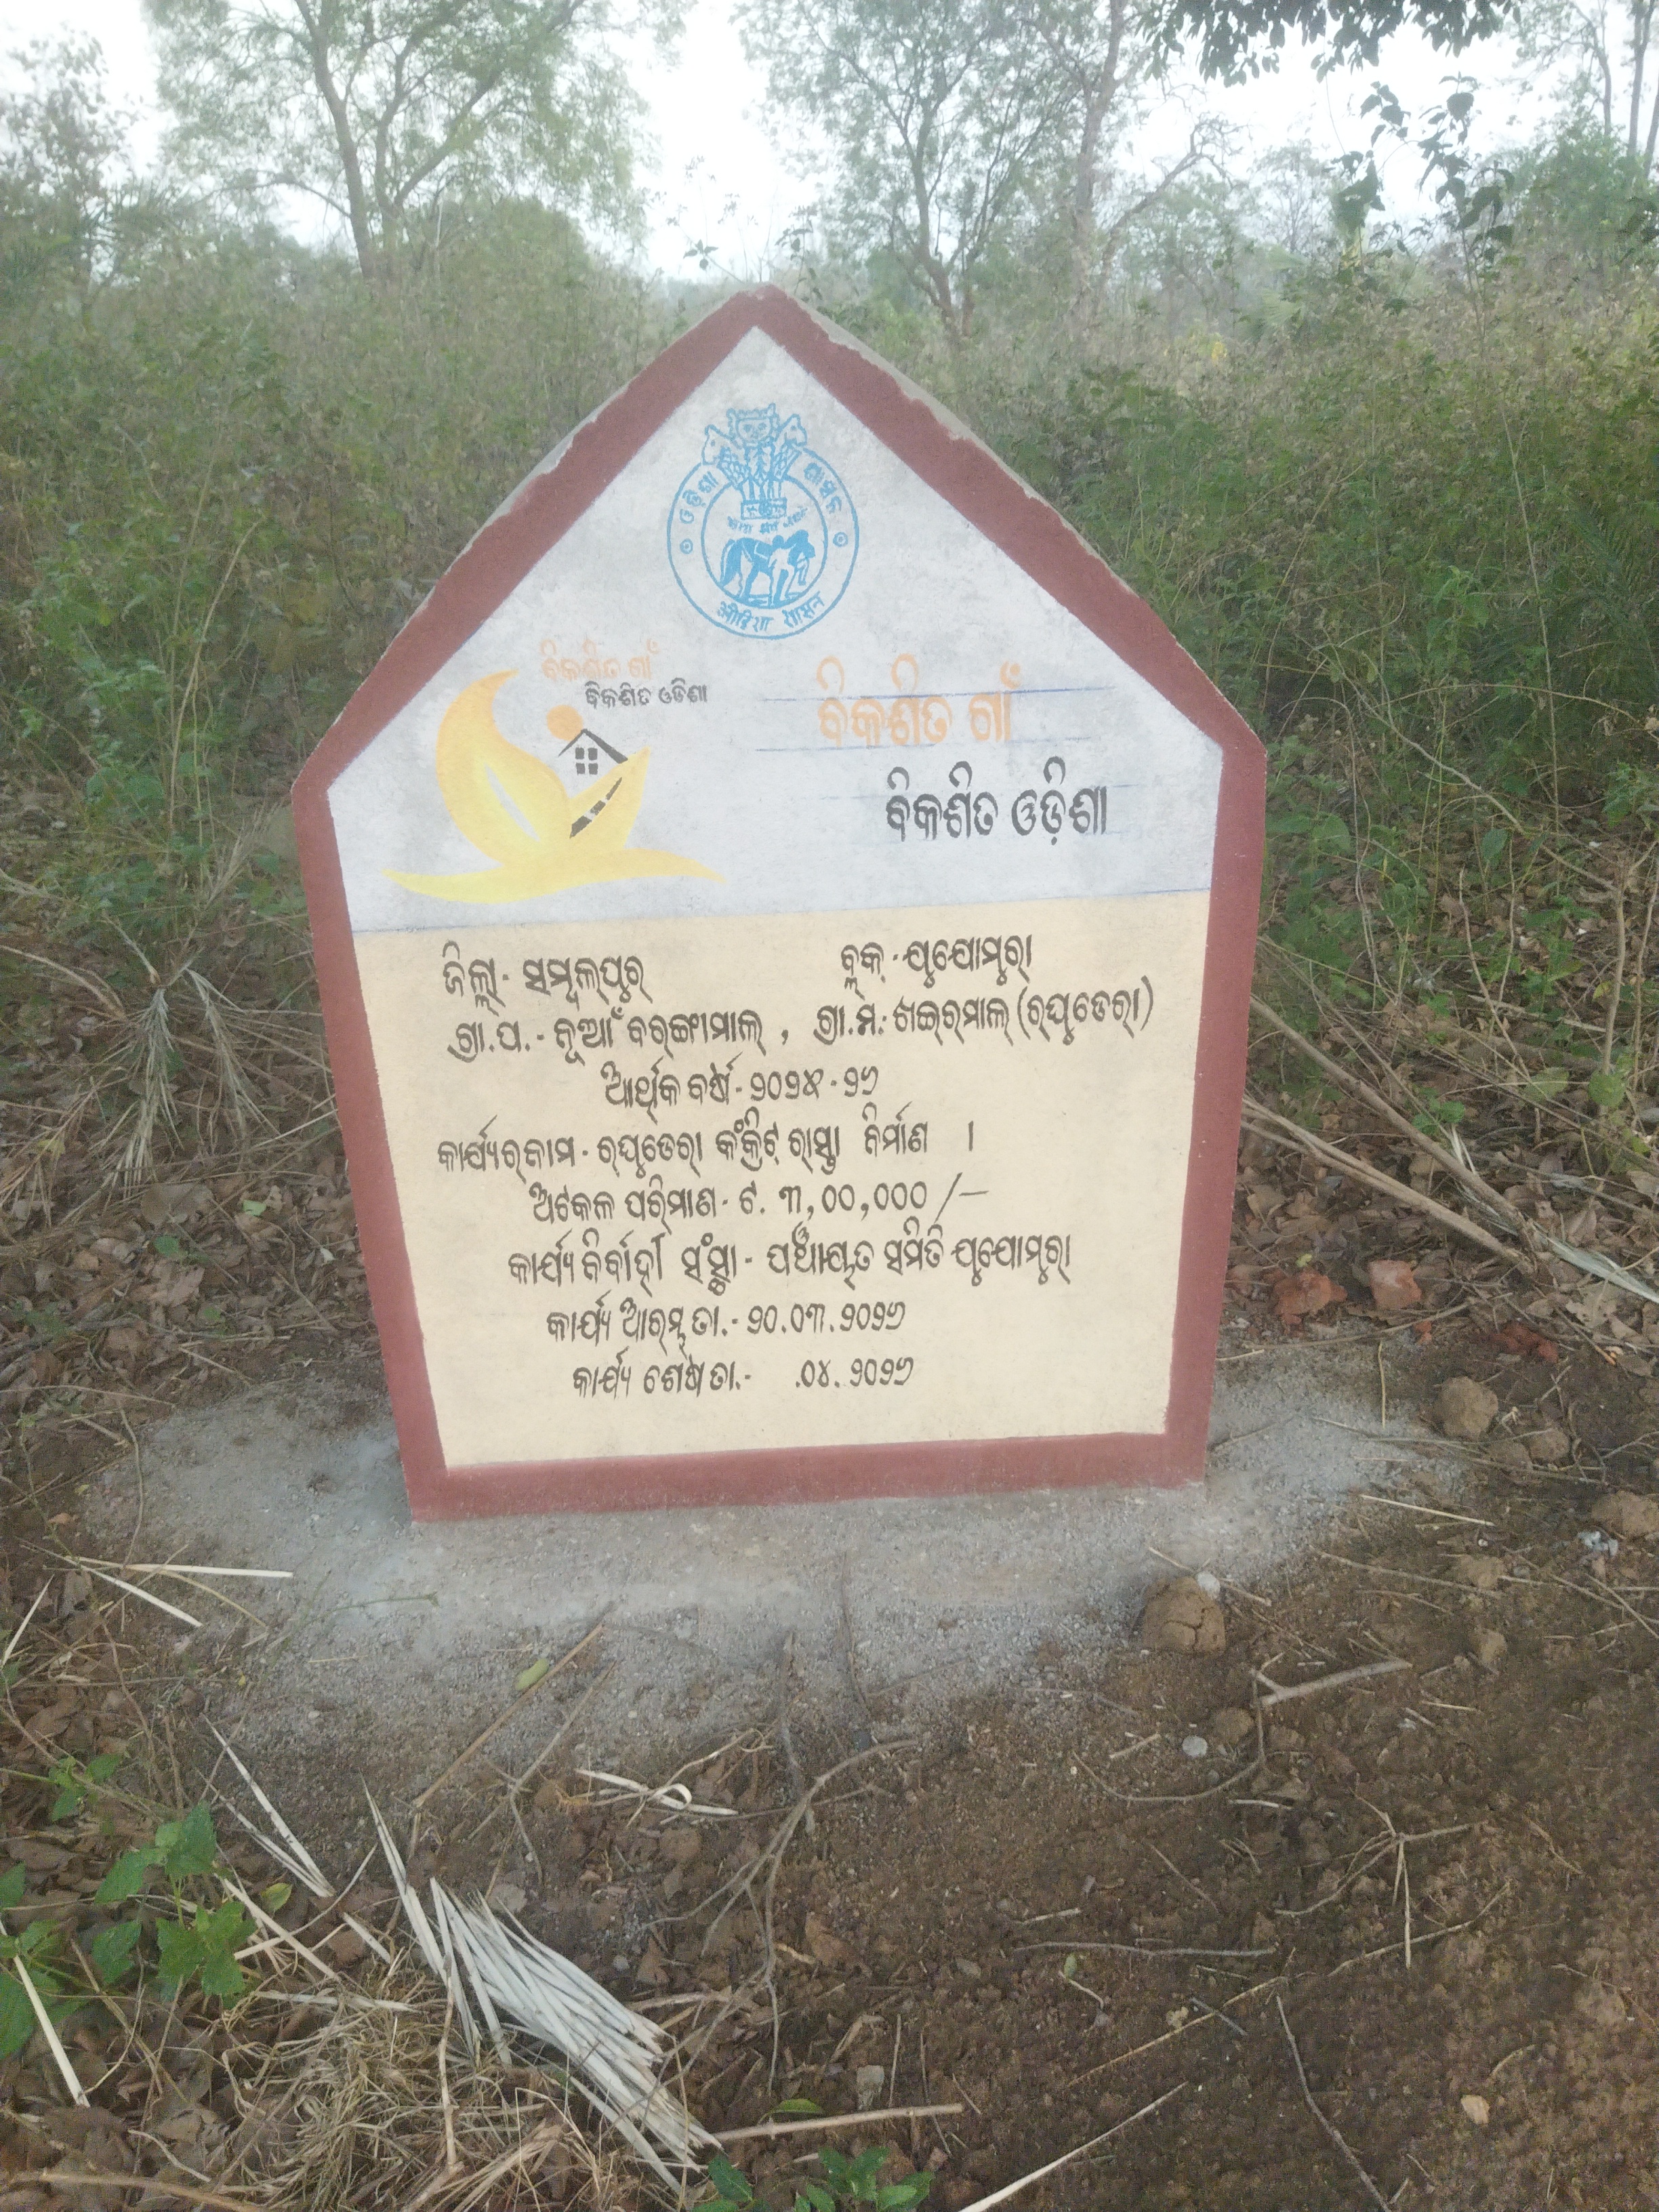 ଓଡ଼ିଶା ଶାସନ
ओडिशा शासन
ବିକଶିତ ଗାଁ
ବିକଶିତ ଓଡିଶା
ବିକଶିତ ଗାଁ
ବିକଶିତ ଓଡ଼ିଶା
ଜିଲ୍ଲା - ସମ୍ବଲପୁର ବ୍ଲକ୍ - ଯୁଯୋମୁରା
ଗ୍ରା.ପ. - ନୂଆଁ ବରଙ୍ଗାମାଲ୍ , ଗ୍ରା.ମ୍ନ: ଖଇର୍‌ମାଲ୍ (ରଘୁଡେରା)
ଆର୍ଥିକ ବର୍ଷ - ୨୦୨୫ - ୨୬
କାର୍ଯ୍ୟର ନାମ - ରଘୁଡେରା କଂକ୍ରିଟ୍ ରାସ୍ତା ନିର୍ମାଣ ।
ଅଟକଳ ପରିମାଣ - ଟ. ୩,୦୦,୦୦୦ /-
କାର୍ଯ୍ୟ ନିର୍ବାହୀ ସଂସ୍ଥା - ପଞ୍ଚାୟତ ସମିତି ଯୁଯୋମୁରା
କାର୍ଯ୍ୟ ଆରମ୍ଭ ତା.- ୨୦.୦୩.୨୦୨୬
କାର୍ଯ୍ୟ ଶେଷ ତା.- .୦୪.୨୦୨୬